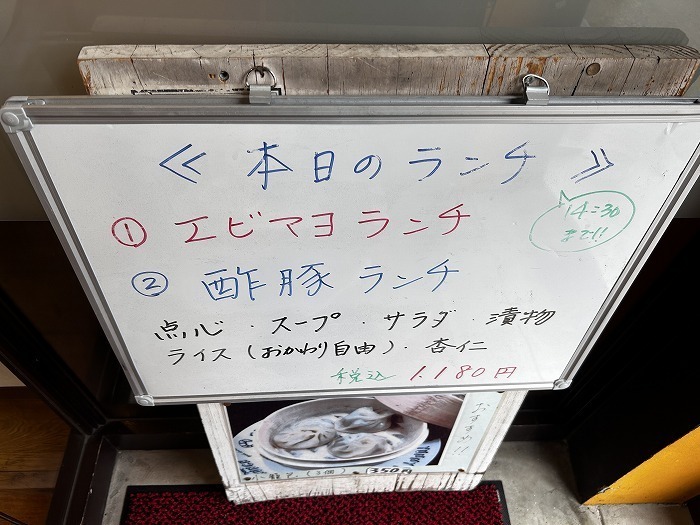 ≪ 本日のランチ ≫
14:30
まで!!
① エビマヨ ランチ
② 酢豚 ランチ
点心・スープ・サラダ・漬物
ライス(おかわり自由)・杏仁
税込 1.180円
おすすめ!!
(3個) 350円